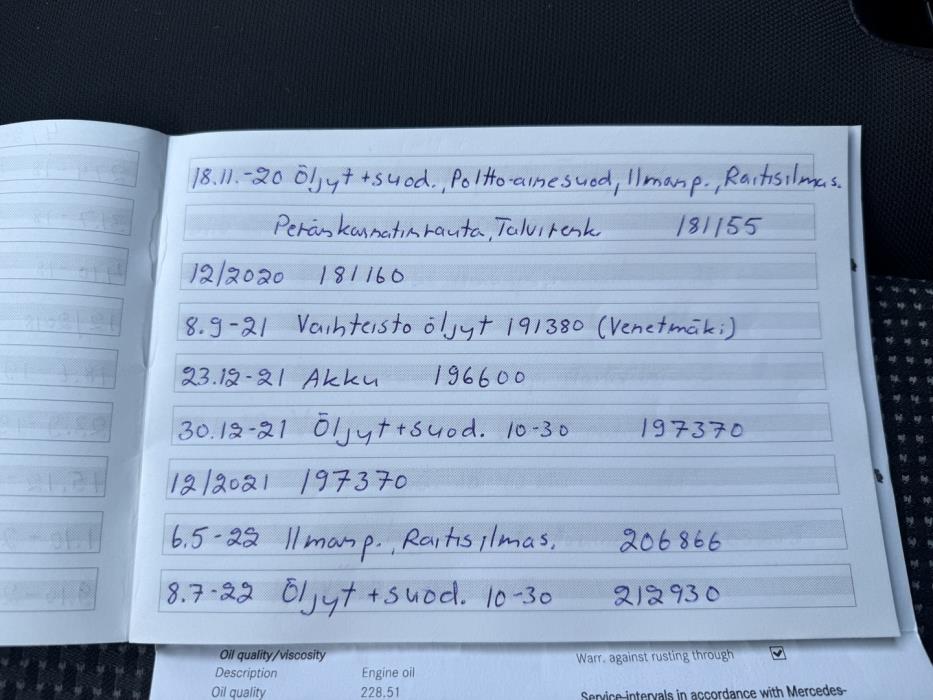 18.11.-20 Öljyt +suod., Poltto-ainesuod, Ilmanp., Raitisilmas.
Peränkannatinrauta, Talvirenk 181155
12/2020 181160
8.9-21 Vaihteisto öljyt 191380 (Venetmäki)
23.12-21 Akku 196600
30.12-21 Öljyt+suod. 10-30 197370
12/2021 197370
6.5-22 Ilmanp., Raitisilmas. 206866
8.7-22 Öljyt +suod. 10-30 212930
Oil quality/viscosity
Warr. against rusting through
Description Engine oil
Oil quality 228.51
Service-intervals in accordance with Mercedes-